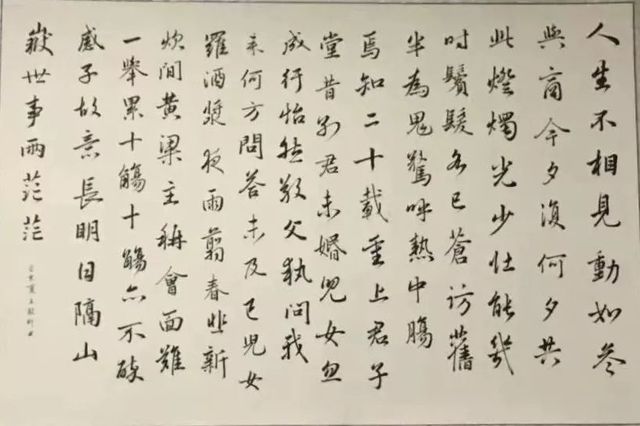 人生不相見動如參
與商今夕復何夕共
此燈燭光少壯能幾
时鬢髮各已蒼訪舊
半為鬼驚呼熱中腸
焉知二十載重上君子
堂昔别君未婚兒女忽
成行怡然敬父執問我
来何方問答未及已兒女
羅酒漿夜雨翦春韭新
炊間黄梁主稱會面難
一舉累十觴十觴亦不醉
感子故意長明日隔山
嶽世事兩茫茫